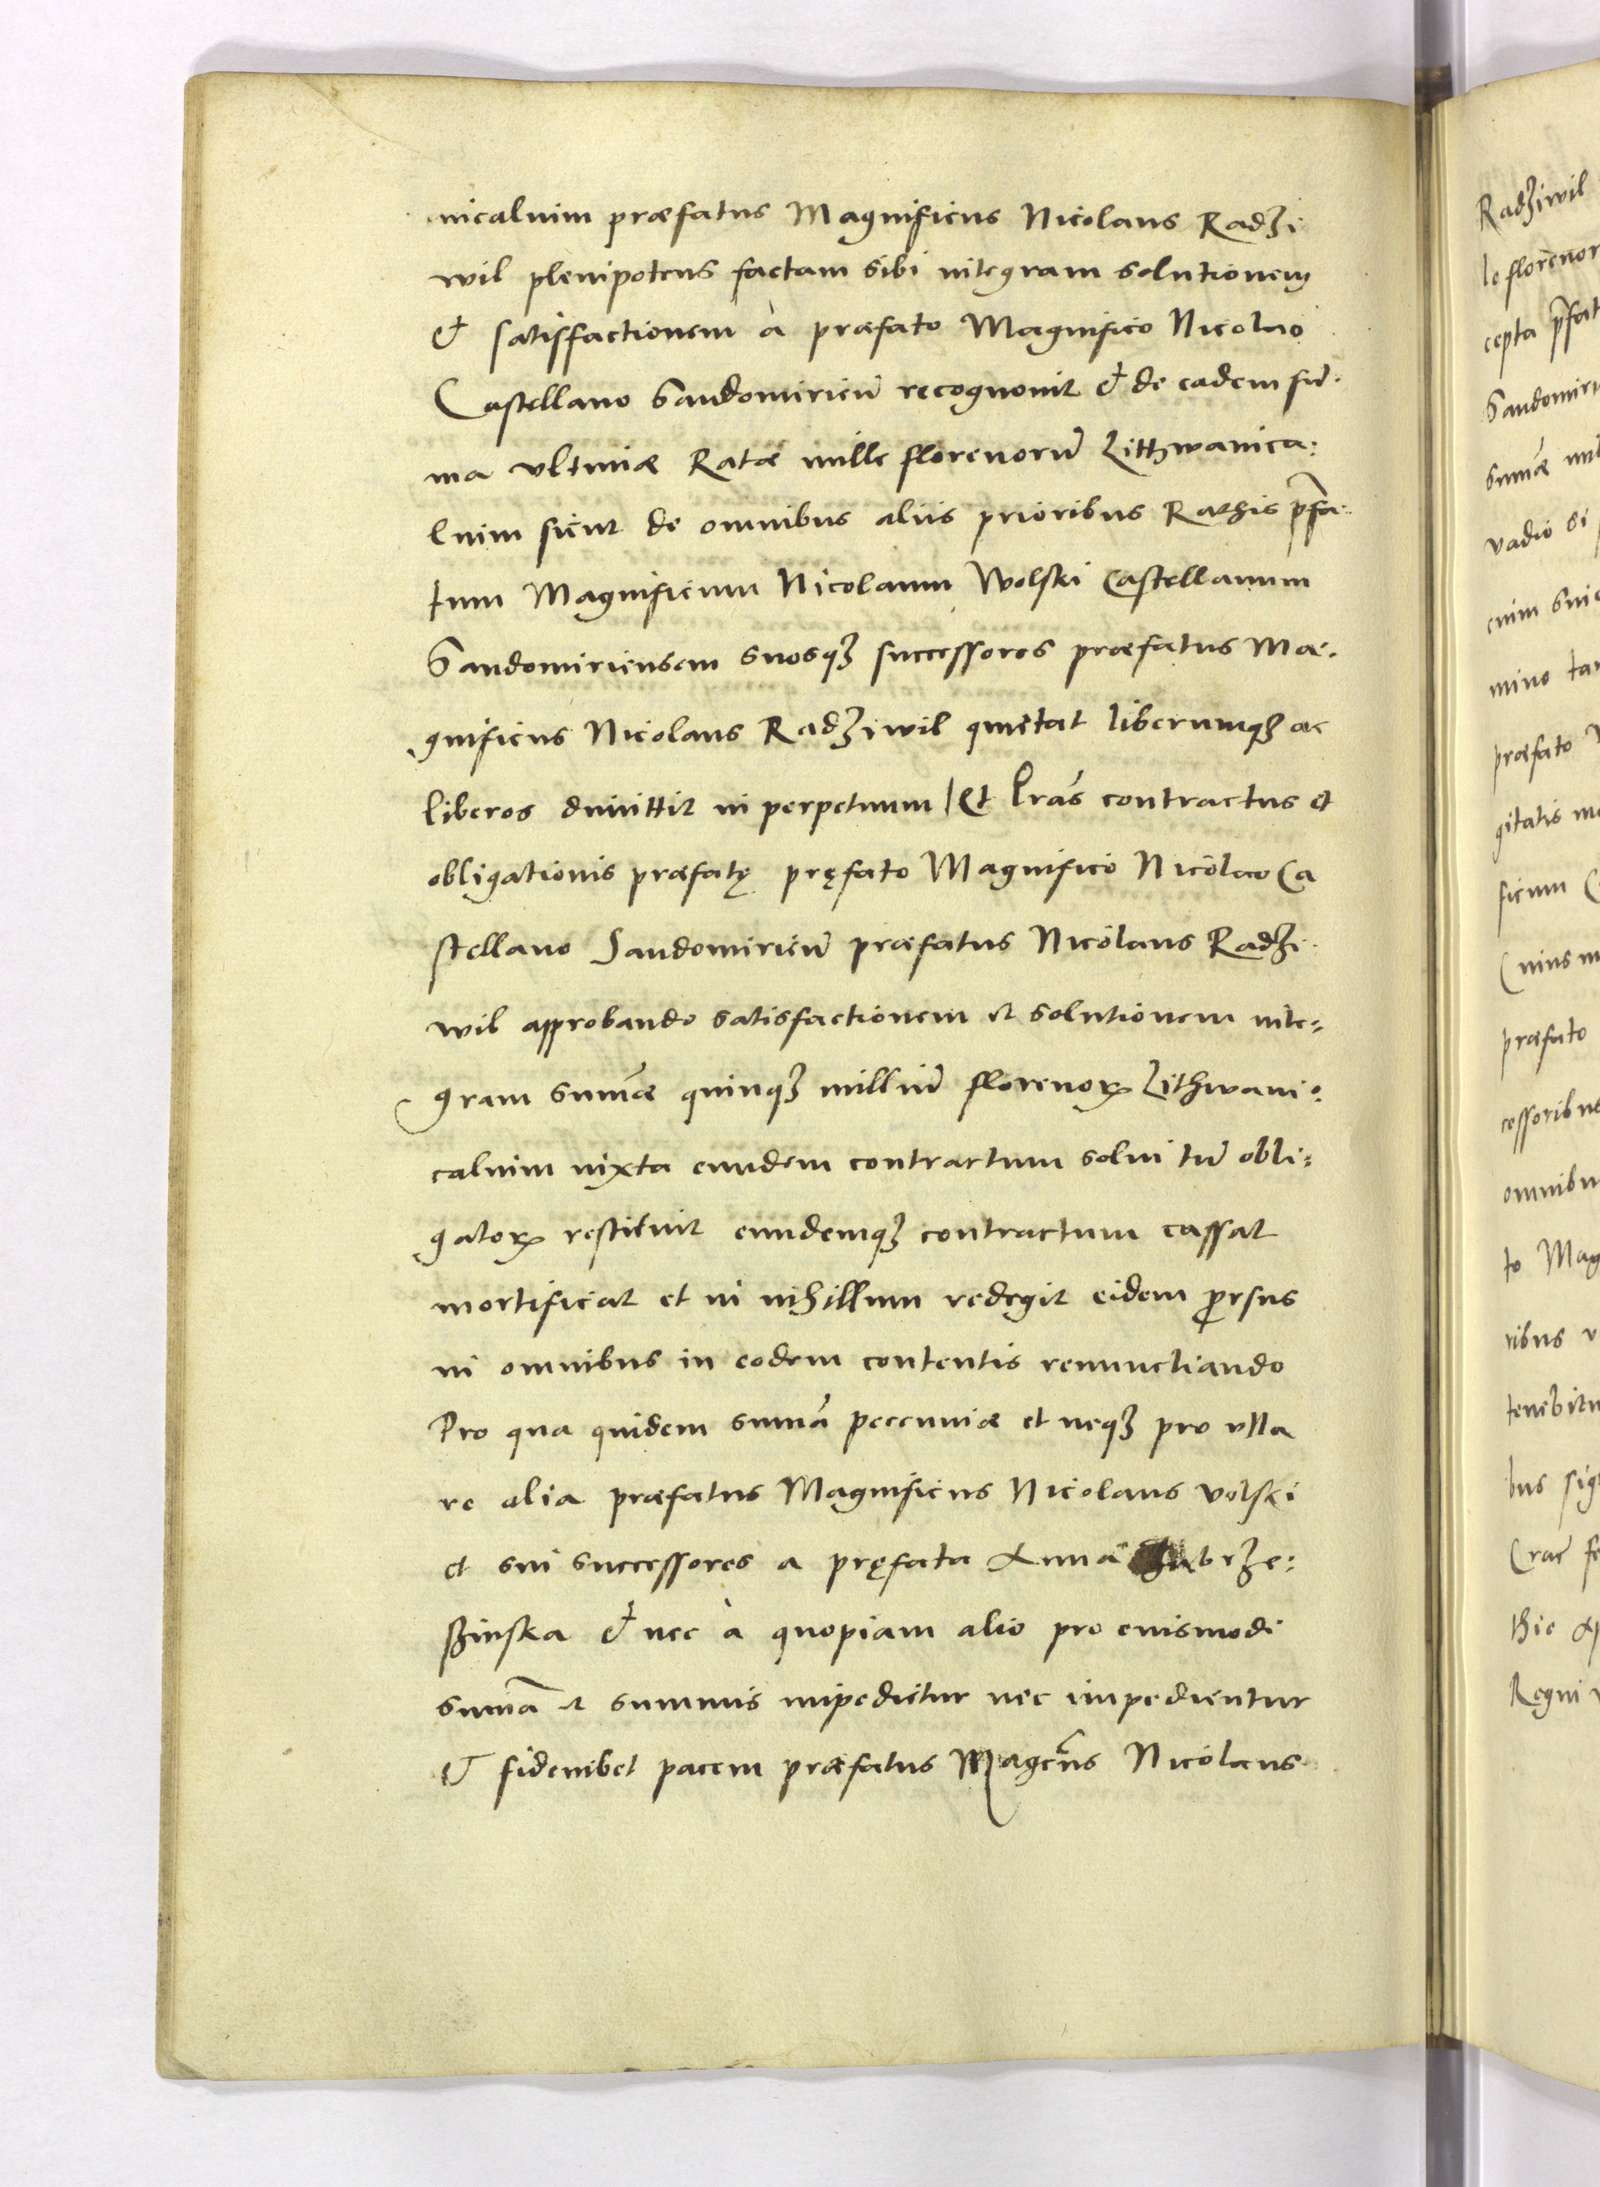 nicaluim præfatus Magnificus Nicolaus Radzi
wil plenipotens factam sibi integram solutionem
& satisfactionem à præfato Magnifico Nicolao
Castellano Sandomirieñ recognouit & de eadem sum̄
ma vltimæ Ratæ mille florenorū Litthwanica:
luim sicut de omnibus aliis prioribus Rathis p̄fa
tum Magnificum Nicolaum Wolski Castellanum
Sandomiriensem suosqȝ successores præfatus Ma
gnificus Nicolaus Radziwil quietat liberumqȝ ac
liberos dimittit in perpetuum | Et l̄ras contractus et
obligationis præfatę pręfato Magnifico Nicolao Ca
stellano Sandomirieñ præfatus Nicolaus Radzi
wil approbando satisfactionem et solutionem inte=
gram sum̄æ quinqȝ milliū florenoꝝ Lithwani:
caluim iuxta eundem contractum solui tū obli:
gatoꝝ restituit eundemqȝ contractum cassat
mortificat et in nihillum redegit eidem ꝓrsus
in omnibus in eodem contentis renunctiando
Pro qua quidem sum̄a peccuniæ et neqȝ pro ulla
re alia præfatus Magnificus Nicolaus volski
et sui successores a pręfata Anna Zabrze:
ssinska & nec à quopiam alio pro eiusmodi
sum̄a et summis impedietur nec impedientur
& fideiubet pacem præfatus Mag̃cus Nicolaus
Radziwil
le florenor
cepta p̄fat
Sandomiri
sum̄æ
vadio si
mino
præfato
gitatis
ficum
præfato
cessoribus
omnibu
to Mag
ribus
tenebitu
bus sig
Crac
Regni